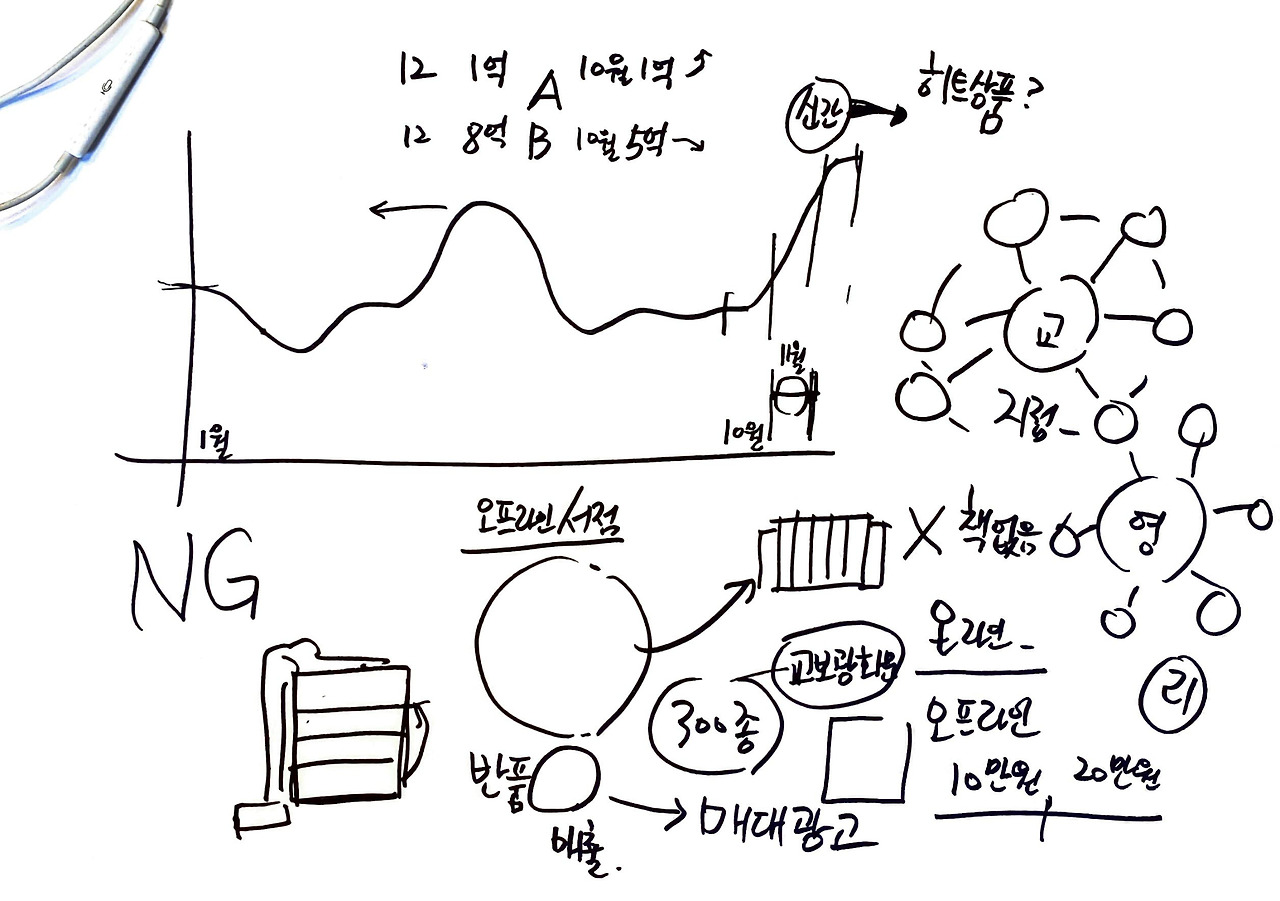 12 1억 A 10월 1억
12 8억 B 10월 5억
신간
히트상품?
교
지점
11월
1월
10월
오프라인서점
NG
X 책없음
영
온라인
교보광화문
300종
리
오프라인
반품
10만원 20만원
매출.
매대광고